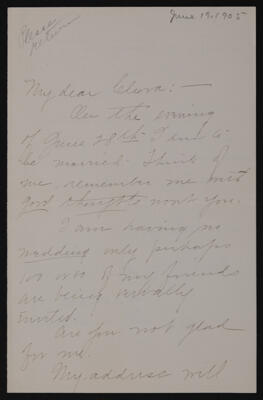 Please
return
June 19. 1905
My dear Clara: —
On the evening
of June 28th I am to
be married. Think of
me, remember me with
good thoughts won't you.
I am having no
wedding only perhaps
100 or so of my friends
are being verbally
invited.
Are you not glad
for me.
My address will